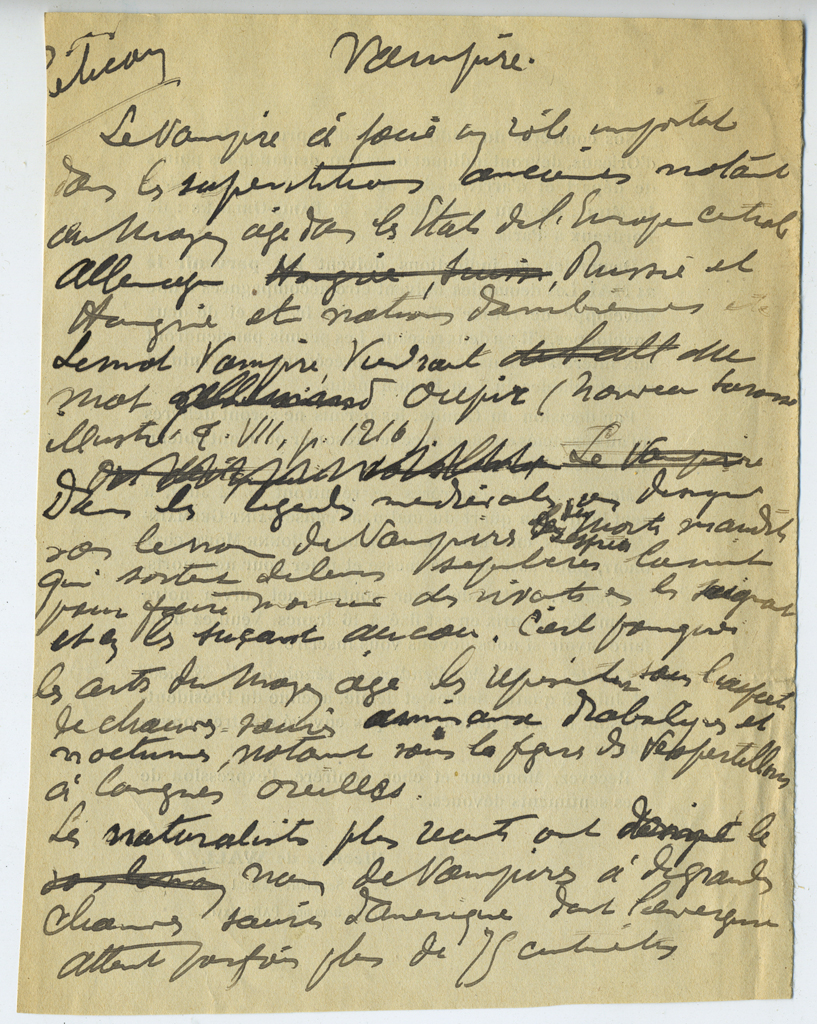 Vampire.
Le Vampire a joué un rôle important
dans les superstitions anciennes notant
au Moyen age dans les Etats de l'Europe centrale
Allemagne Hongrie, Russie et
Hongrie et nations
Le mot Vampire, Viendrait du
mot oupir (Nouveau Larousse
illustré T. VII, p. 1216)
Le Vampire
Dans les legendes medievales on designe
sous le nom de Vampires des morts maudits
qui sortent de leurs sepulcres la nuit
pour faire mourir des vivants en les saignant
et en les suçant au cou. C'est pourquoi
les arts du Moyen age les représente sous l'aspect
de chauves-souris animaux diaboliques et
nocturnes, notant sous la figure des Vespertillons
à longues oreilles.
Les naturalistes plus recents ont designé le
sous le nom nom de Vampires à de grandes
chauves souris d'amerique dont l'envergure
atteint parfois plus de 75 centimètres